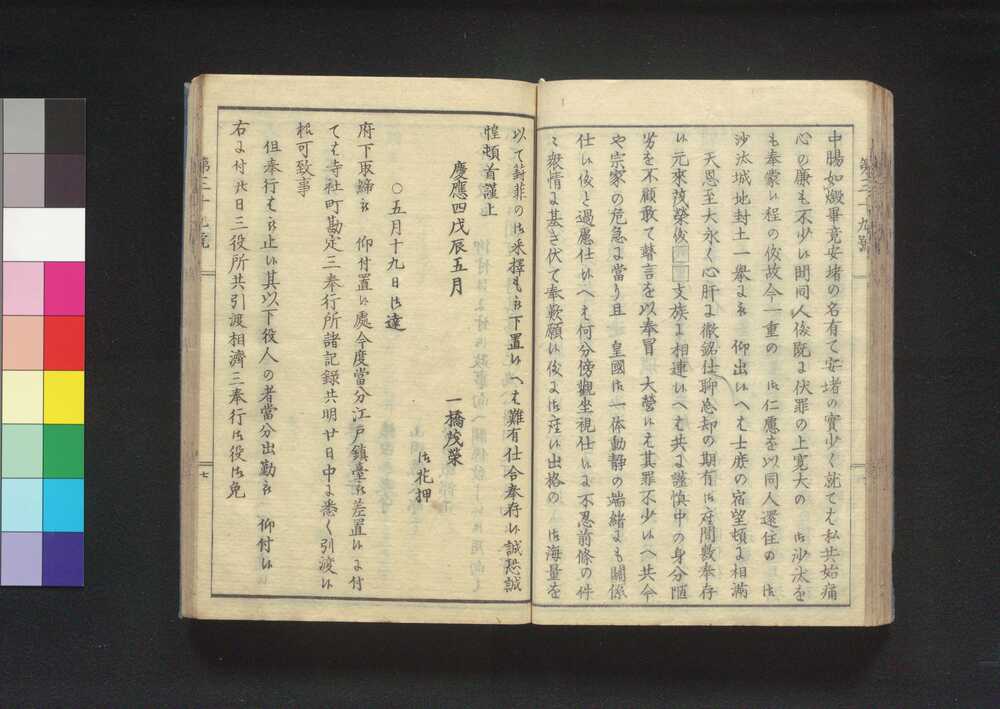 中腸如燬畢竟安堵の名有て安堵の實少く就ても私共始痛
心の廉も不少い間同人儀既よ伏罪の上寛大の 御沙汰を
も奉蒙い程の儀故今一重の 御仁慮を以同人還住の 御
沙汰城地封土一擧よ被 仰出いへも士庶の宿望頓よ相満
天恩至大永く心肝よ徹銘仕聊忘却の期有御座間敷奉存
い元來茂榮儀□□支族よ相連いへも共よ謹慎中の身分陋
劣を不顧敢て瞽言を以奉冒 大營いも其罪不少いへ共今
や宗家の危急よ當り且 皇國御一体動静の端緒よも關係
仕い儀と過慮仕いへも何分傍觀坐視仕いよ不忍前條の件
々衆情よ基き伏て奉歎願い儀よ御座い出格の 御海量を
以て葑菲の御采擇も被下置いへも難有仕合奉存い誠恐誠
惶頓首謹上
慶應四戊辰五月
一橋茂榮
御花押
○五月十九日御達
府下取締被 仰付置い處今度當分江戸鎮臺被差置いよ付
ても寺社町勘定三奉行所諸記録共明廿日中よ悉く引渡い
様可致事
但奉行も被止い其以下役人の者當分出勤被 仰付い
右よ付此日三役所共引渡相濟三奉行御役御免
第三十九號
七
第三十九號